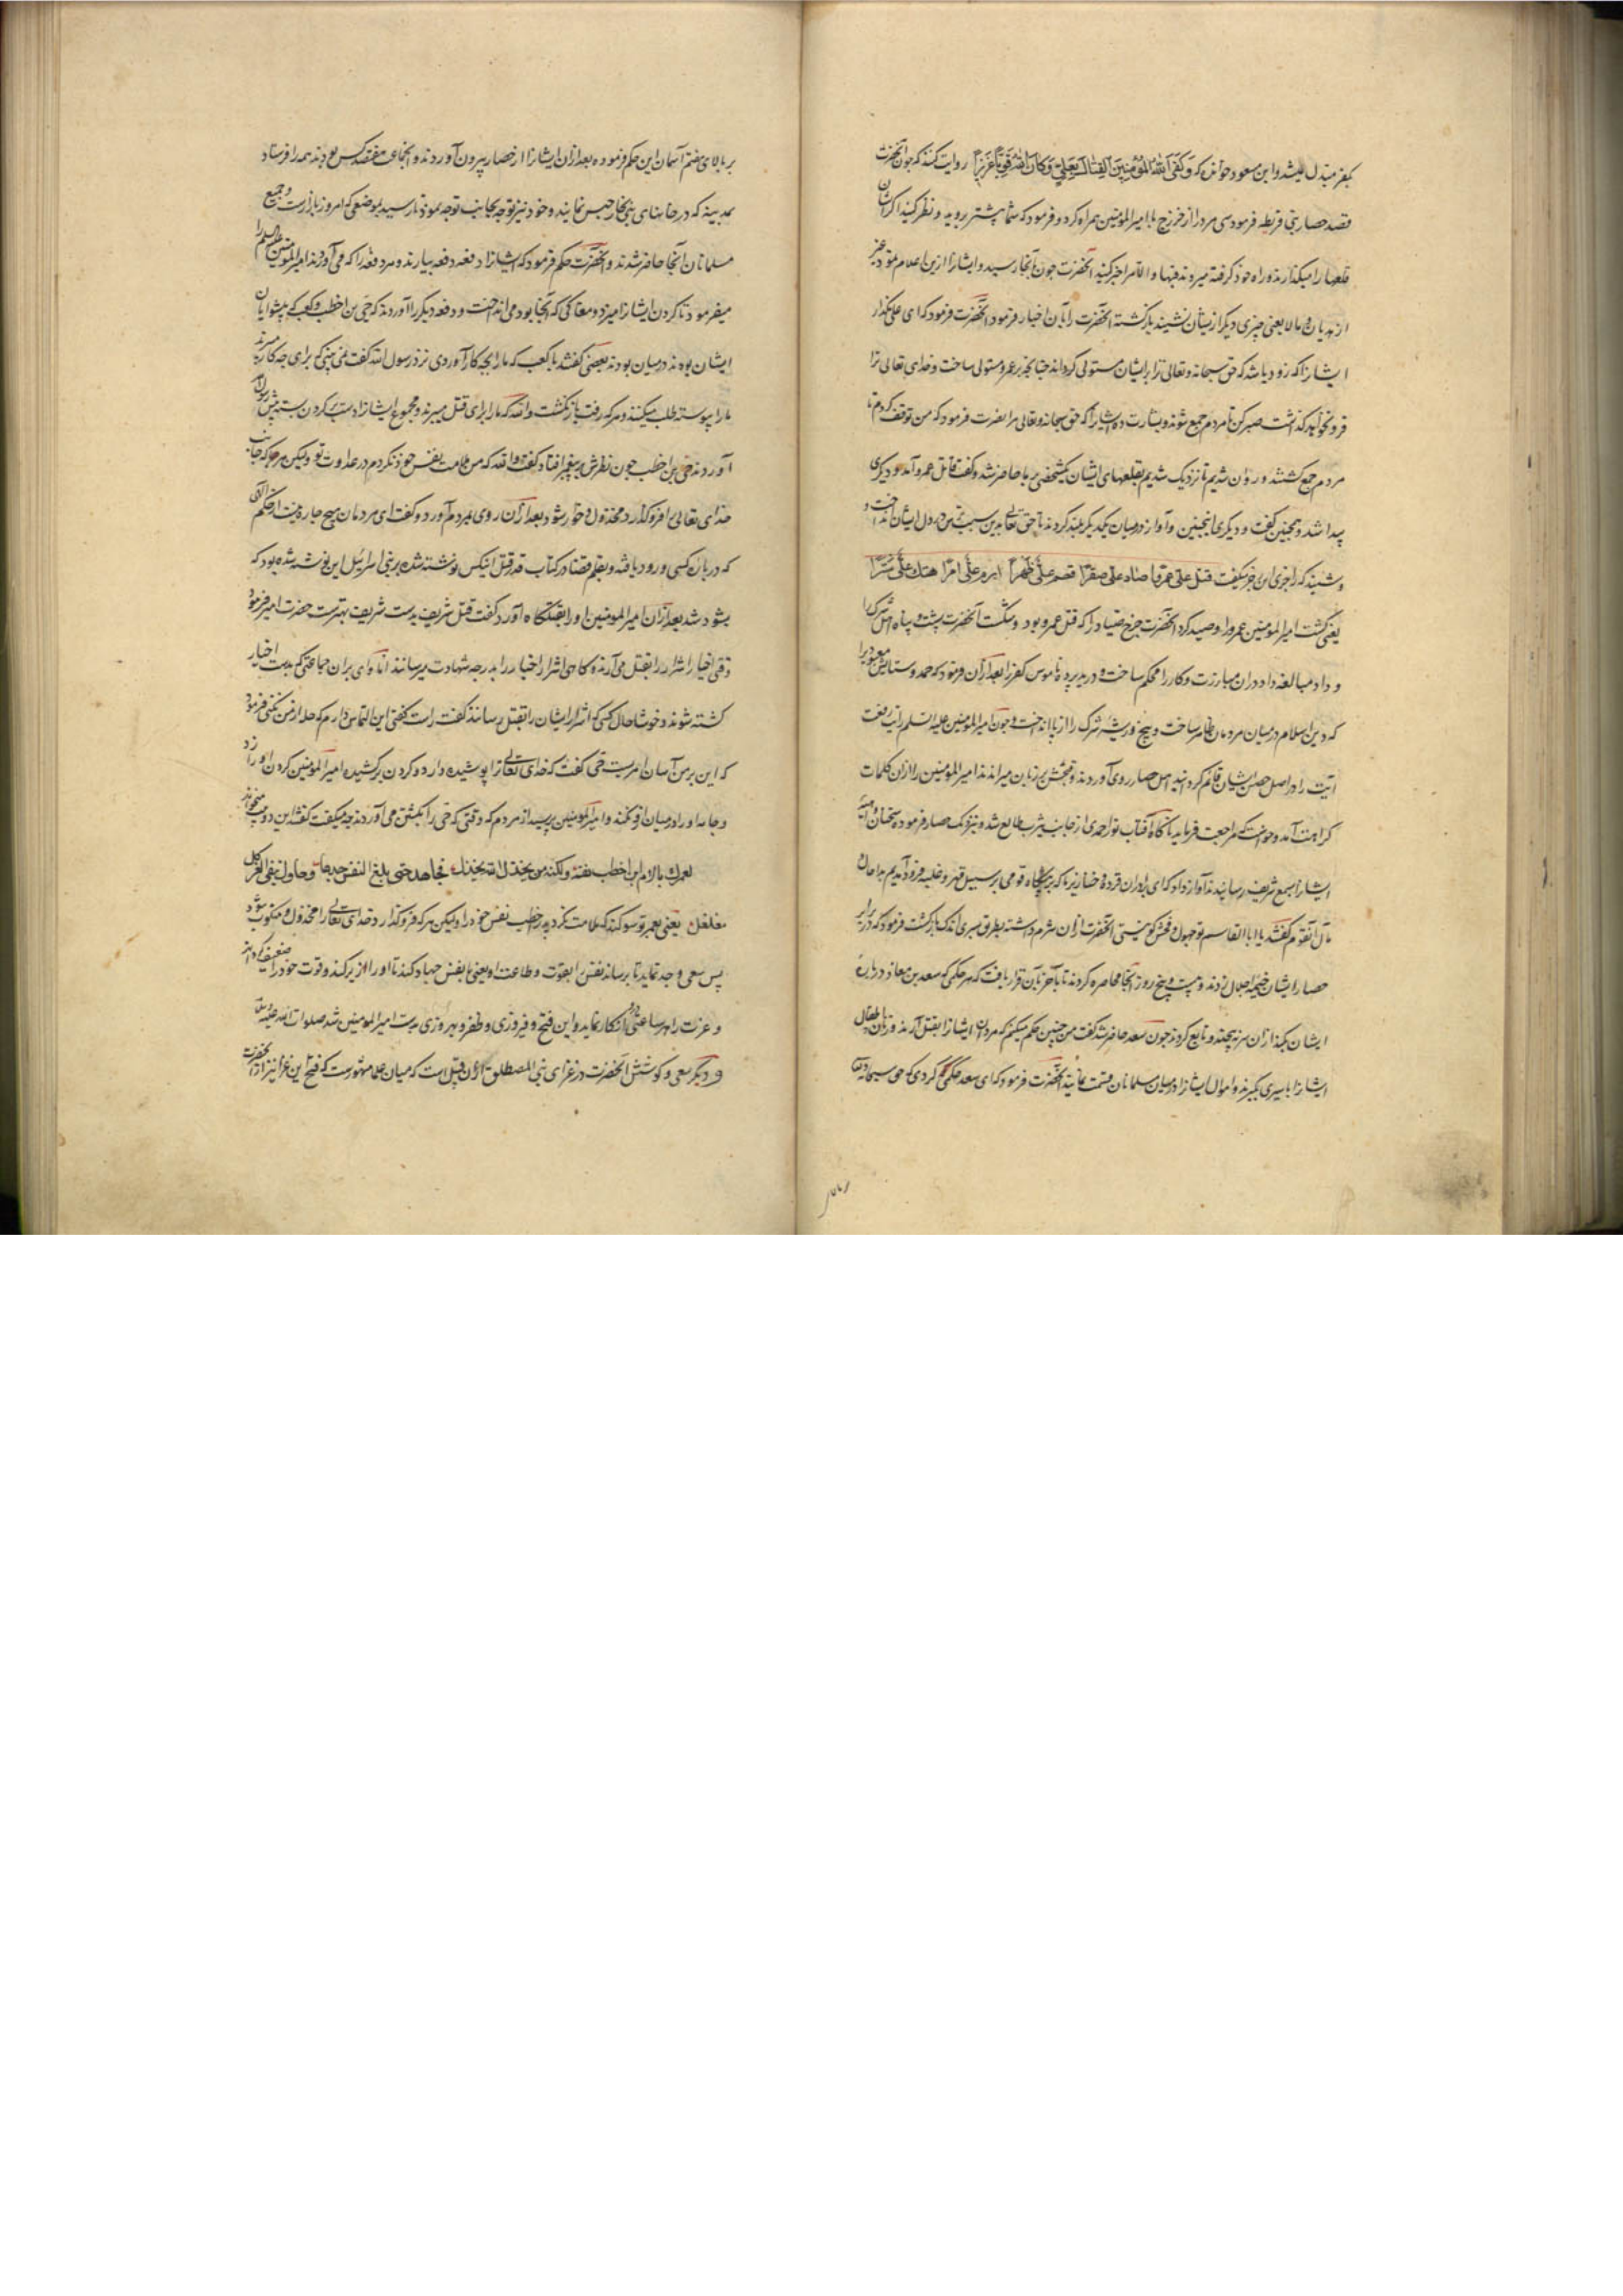 بکفر مبدل میشد و ابن مسعود خواندی که وَكَفَى اللهُ المُؤْمِنِينَ القِتَالَ بِعَلِيٍّ وَكَانَ اللهُ قَوِيًّا عَزِيزًا روایت کنند که چون آنحضرت
قصد حصار بنی قریظه فرمود سی مرد را از خزرج با امیرالمؤمنین همراه کرد و فرمود که شما پیشتر بروید و نظر کنید اگر ایشان
قلعها را میگذارند و راه خود گرفته میروند فبها و الا مرا خبر کنید آنحضرت چون آنجا رسید و ایشانرا ازین اعلام نمود
از هذیان و مالا یعنی چیزی دیگر ازیشان نشنیدند بازگشته آنحضرت را بآن اخبار فرمود آنحضرت فرمود که ای علی بگذار
ایشانرا که زود باشد که حق سبحانه و تعالی ترا بر ایشان مستولی گرداند چنانچه بر عمرو مستولی ساخت و خدای تعالی ترا
فرو نخواهد گذاشت صبر کن تا مردم جمع شوند و بشارت ده ایشانرا که حق سبحانه و تعالی مرا نصرت فرمود که من توقف کردم تا
مردم جمع گشتند و روان شدیم تا نزدیک شدیم بقلعهای ایشان یکشخصی بر ما حاضر شد و گفت قاتل عمرو آمد و دیگری
پیدا شد و همچنین گفت و دیگری همچنین و آواز در میان یکدیگر بلند کردند تا حق تعالی بدین سبب ترس در دل ایشان انداخت و
و شنیدند که راجزی این رجز میگفت قتل علی عمرا صاد علی صقرا قصم علی ظهرا ابرم علی امرا هتک علی سترا
یعنی کشت امیرالمؤمنین عمرو را و صید کرد آنحضرت چرخ صیاد را که قتل عمرو بود و شکست آنحضرت پشت و پناه اهل شرک را
و داد مبالغه داد در آن مبارزت و کار را محکم ساخت و درید پرده ناموس کفر را بعد از آن فرمود که حمد و ستایش معبود را
که دین اسلام در میان مردمان ظاهر ساخت و بیخ و ریشه شرک را از پا انداخت و چون امیرالمؤمنین علیه السلم رایت رفعت
آیت را در اصل حصن ایشان قائم گردانید اهل حصار روی آوردند و فحش بر زبان میراندند امیرالمؤمنین را از آن کلمات
کراهت آمد و خواست که مراجعت فرماید ناگاه آفتاب نور احمدی از جانب یثرب طالع شد و نزدیک حصار فرموده سخنان
ایشانرا بسمع شریف رسانیدند آواز داد که ای برادران قرده و خنازیر ما که بر درگاه قومی بر سبیل قهر و غلبه فرود آمدیم بدا حال
مآل آنقوم گفتند یا ابا القاسم تو جهول و فحش گو نیستی آنحضرت از آن شرم داشته بطریق سیری اندک بازگشت فرمود که در برابر
حصار ایشان خیمه اجلال زدند و بیست و پنج روز آنجا محاصره کردند تا بآخر بآن قرار یافت که هر حکمی که سعد بن معاذ درباره
ایشان بگذارد از آن سر نپیچند و تابع گردند چون سعد حاضر شد گفت من چنین حکم میکنم که مردان ایشانرا بقتل آرند و زنان و اطفال
ایشانرا باسیری بگیرند و اموال ایشانرا در میان مسلمانان قسمت نمایند آنحضرت فرمود که ای سعد حکمی کردی که حق سبحانه و تعالی
بر بالای هفتم آسمان این حکم فرموده بعد از آن ایشانرا از حصار بیرون آوردند و آنجماعت هفتصد کس بودند همه را فرستاد
بمدینه که در خانهای بنی نجار حبس نمایند و خود نیز توجه بجانب توجه نمود تا رسید بموضعی که امروز بازارست و جمیع
مسلمانان آنجا حاضر شدند و آنحضرت حکم فرمود که ایشانرا دفعه دفعه بیارند و هر دفعه را که می آوردند امیرالمؤمنین علیه السلم را
میفرمود تا گردن ایشانرا میزد و مغاکی که آنجا بود می انداخت و دفعه دیگر را آوردند که حیی بن اخطب و کعب که پیشوایان
ایشان بودند در میان بودند بعضی گفتند با کعب که ما را بچه کار آوردی نزد رسول الله گفت نمی بینی که برای چه کار میبرند
ما را پیوسته طلب میکنند و هر که رفت باز نگشت والله که ما را برای قتل میبرند و مجموع ایشانرا دست بر گردن بسته پیش رسول
آوردند حیی بن اخطب چون نظرش بر پیغمبر افتاد گفت والله که من ملامت نفس خود نکردم در عداوت تو ولیکن هر که جانب
خدای تعالی را فرو گذارد مخذول و خوار شود بعد از آن روی بمردم آورد و گفت ای مردمان هیچ چاره نیست از حکم الهی
که در باره کسی ورود یافته و بقلم قضا در کتاب قدر قتل آنکس نوشته شده بر بنی اسرائیل این نوشته شده بود که
بشود شد بعد از آن امیرالمؤمنین او را بقتلگاه آورد گفت قتل شریف بدست شریف بهترست حضرت امیر فرمود
وقتی اخیار اشرار را بقتل می آرند و گاهی اشرار اخیار را بدرجه شهادت میرسانند اما وای بران جماعتی که بدست اخیار
کشته شوند و خوشا حال کسی که اشرار ایشان را بقتل رسانند گفت راست گفتی این التماس دارم که حله از من نکنی فرمود
که این بر من آسان امریست حیی گفت که خدای تعالی ترا پوشیده دارد و گردن برکشیده امیرالمؤمنین گردن او را زد
و جامه او را در میان او نکندند و امیرالمؤمنین پرسید از مردم که وقتی که حیی را بکشتن می آوردند چه میگفت گفتند این دو بیت میخواند
لعمرک ما لام ابن اخطب نفسه ولکنه من یخذل الله یخذل فجاهد حتی بلغ النفس جهدها وحاول یبغی العز کل
مغلغل یعنی بعمر تو سوگند که ملامت نکرد پسر اخطب نفس خود را ولیکن هر که فرو گذارد خدای تعالی را مخذول و منکوب شود
پس سعی و جد نماید تا برساند نفس را بقوت و طاعت او یعنی با نفس جهاد کند تا او را از زیر کند و قوت خود را ضعیف گرداند
و عزت را هر ساعتی انکار نماید و این فتح و فیروزی و ظفر و بهروزی بدست امیرالمؤمنین شد صلوات الله علیه
و دیگر سعی و کوشش آنحضرت در غزای بنی المصطلق از آن قبیل است که میان علما مشهورست که فتح این غزا نیز از آنحضرت